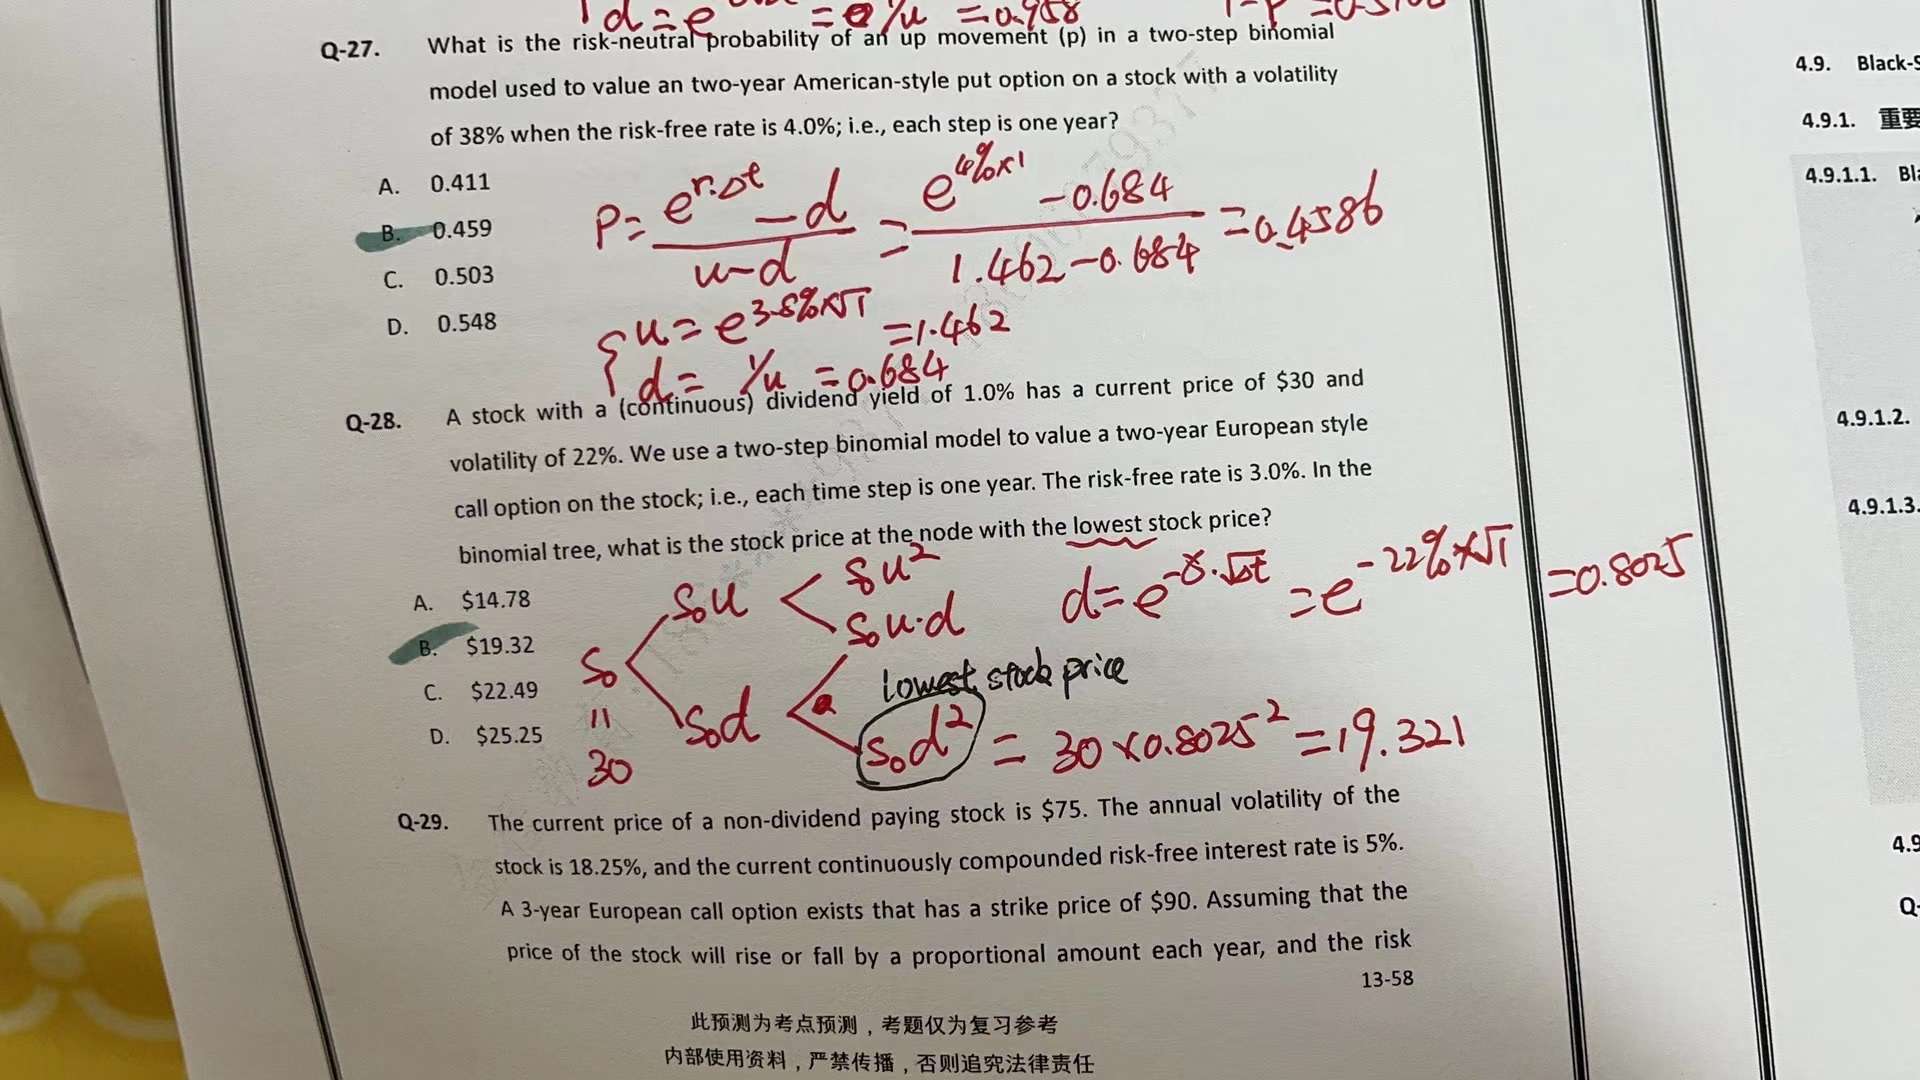 d = e = e 1/u = 0.958
Q-27. What is the risk-neutral probability of an up movement (p) in a two-step binomial
model used to value an two-year American-style put option on a stock with a volatility
of 38% when the risk-free rate is 4.0%; i.e., each step is one year?
A. 0.411
B. 0.459
C. 0.503
D. 0.548
P = e^r·Δt - d / u - d = e^4%×1 - 0.684 / 1.462 - 0.684 = 0.4586
u = e^3.8%×√1 = 1.462
d = 1/u = 0.684
Q-28. A stock with a (continuous) dividend yield of 1.0% has a current price of $30 and
volatility of 22%. We use a two-step binomial model to value a two-year European style
call option on the stock; i.e., each time step is one year. The risk-free rate is 3.0%. In the
binomial tree, what is the stock price at the node with the lowest stock price?
A. $14.78
B. $19.32
C. $22.49
D. $25.25
S₀ = 30
S₀u
S₀d
Su²
S₀u·d
lowest stock price
S₀d² = 30×0.8025² = 19.321
d = e^-σ·√Δt = e^-22%×√1 = 0.8025
Q-29. The current price of a non-dividend paying stock is $75. The annual volatility of the
stock is 18.25%, and the current continuously compounded risk-free interest rate is 5%.
A 3-year European call option exists that has a strike price of $90. Assuming that the
price of the stock will rise or fall by a proportional amount each year, and the risk
13-58
此预测为考点预测，考题仅为复习参考
内部使用资料，严禁传播，否则追究法律责任
4.9. Black-S
4.9.1. 重要
4.9.1.1. Bla
4.9.1.2.
4.9.1.3.
4.9
Q-